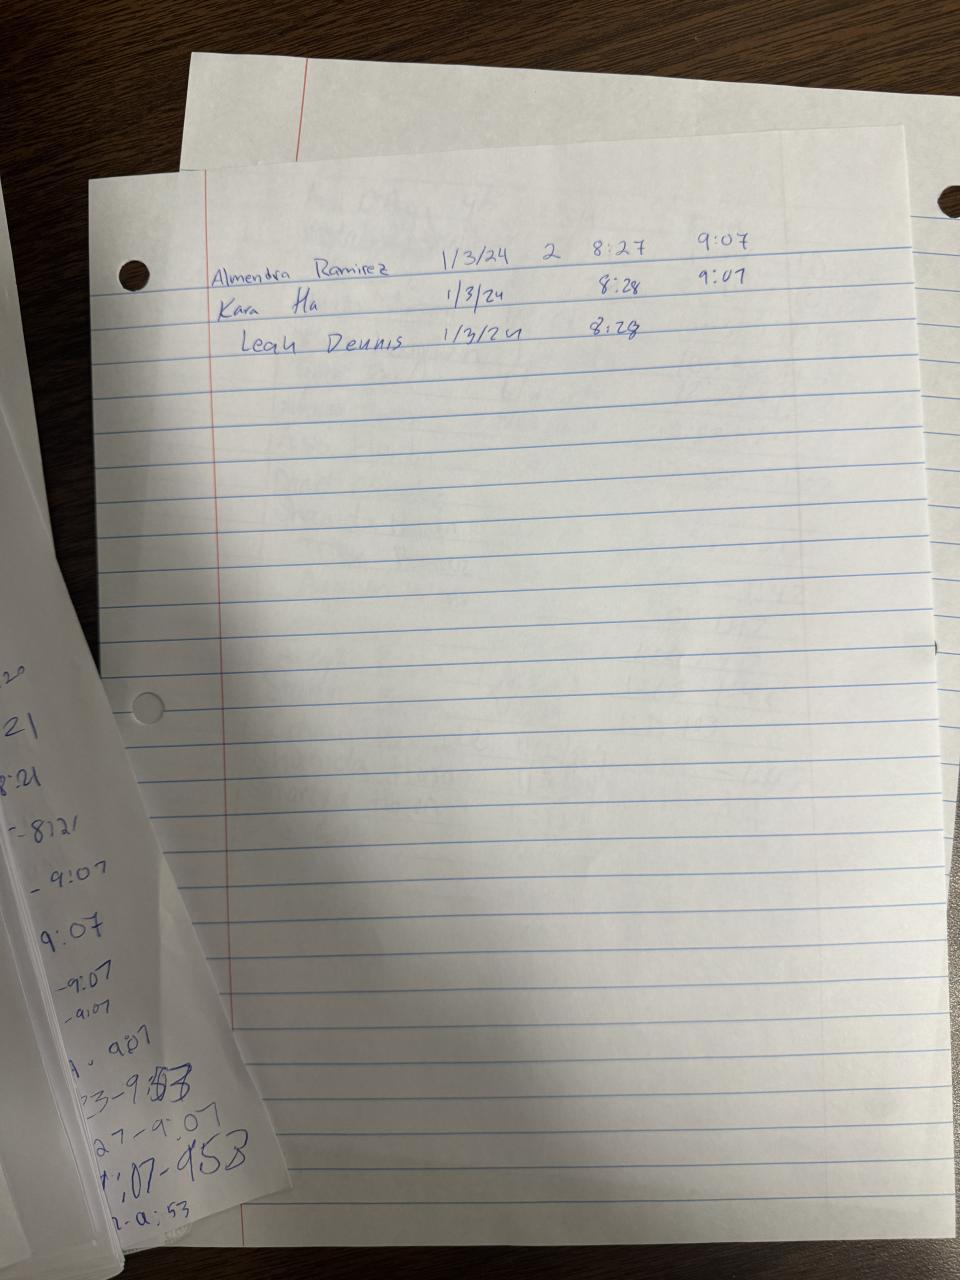 Almendra Ramirez 1/3/24 2 8:27 9:07
Kara Ha 1/3/24 8:28 9:07
Leah Dennis 1/3/24 8:28
:20
21
8:21
-8:21
- 9:07
9:07
-9:07
-9:07
- 9:07
23-9:53
27-9:07
:07-953
-9:53